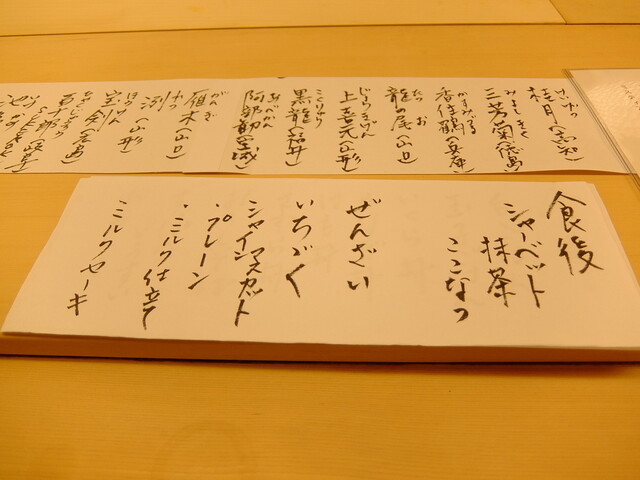 けいげつ
桂月(高知)
みよしきく
三芳菊(徳島)
かすみつる
香住鶴(兵庫)
たつ お
龍の尾(山口)
じょうきげん
上喜元(山形)
こくりゅう
黒龍(福井)
あべかん
阿部勘(宮城)
がんぎ
雁木(山口)
冽(山形)
ほうけん
宝剣(広島)
食後
シャーベット
抹茶
ここなつ
ぜんざい
いちじく
シャインマスカット
・プレーン
・ミルク仕立て
ミルクセーキ